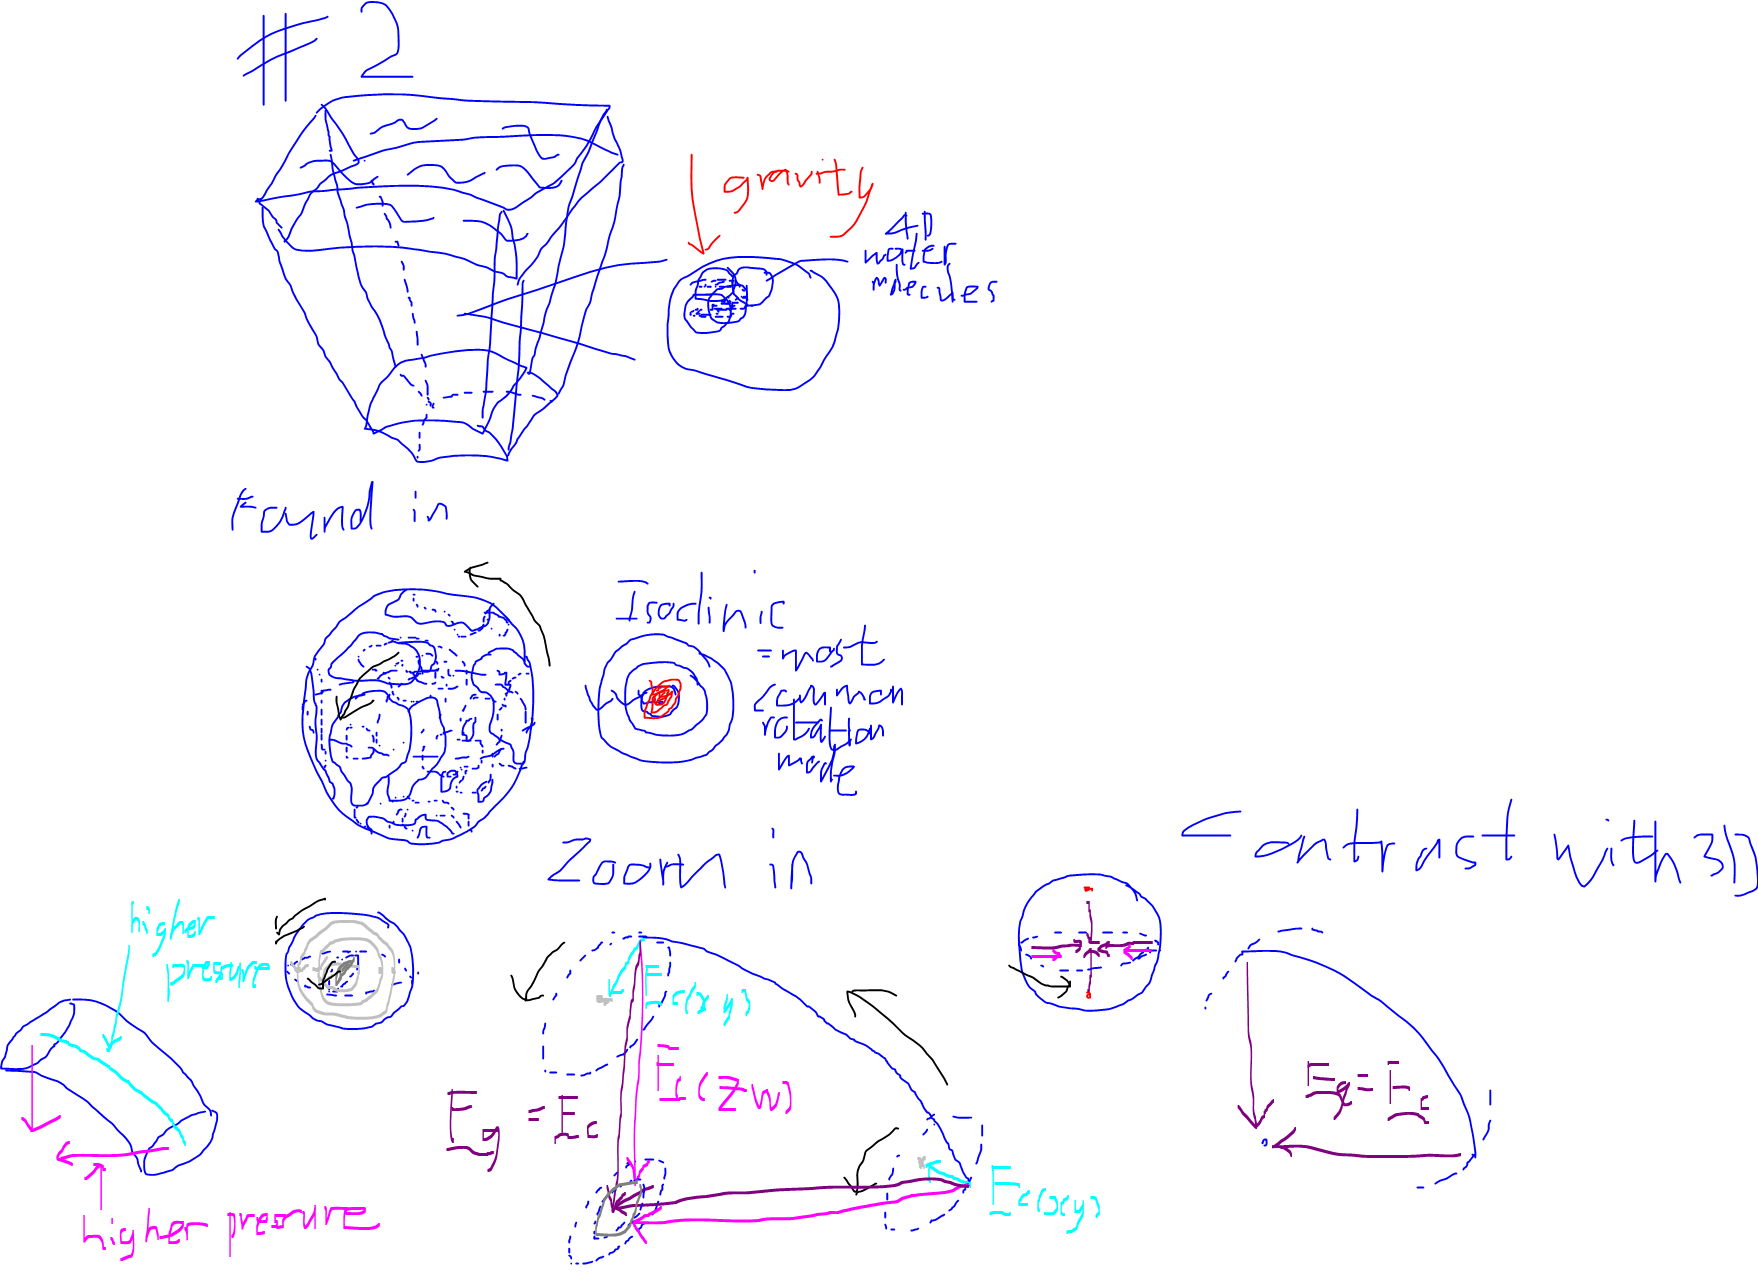 # 2
gravity
4D
water
molecules
Found in
Isoclinic
= most
common
rotation
mode
Zoom in
Contrast with 3D
higher
pressure
Fc(xy)
Fc(zw)
Fg = Fc
Fg = Fc
Fc(xy)
higher pressure